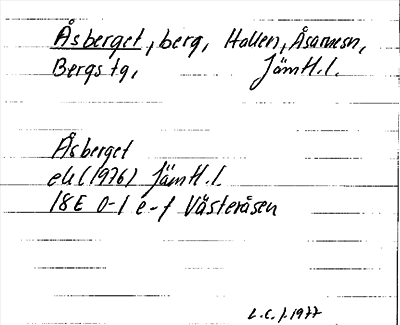 Åsberget, berg, Hallen, Åsarnesn,
Bergs tg, Jämtl.l.
Åsberget
ek (1976) Jämtl.l.
18E 0-1 e-f Västeråsen
L.C.J. 1977